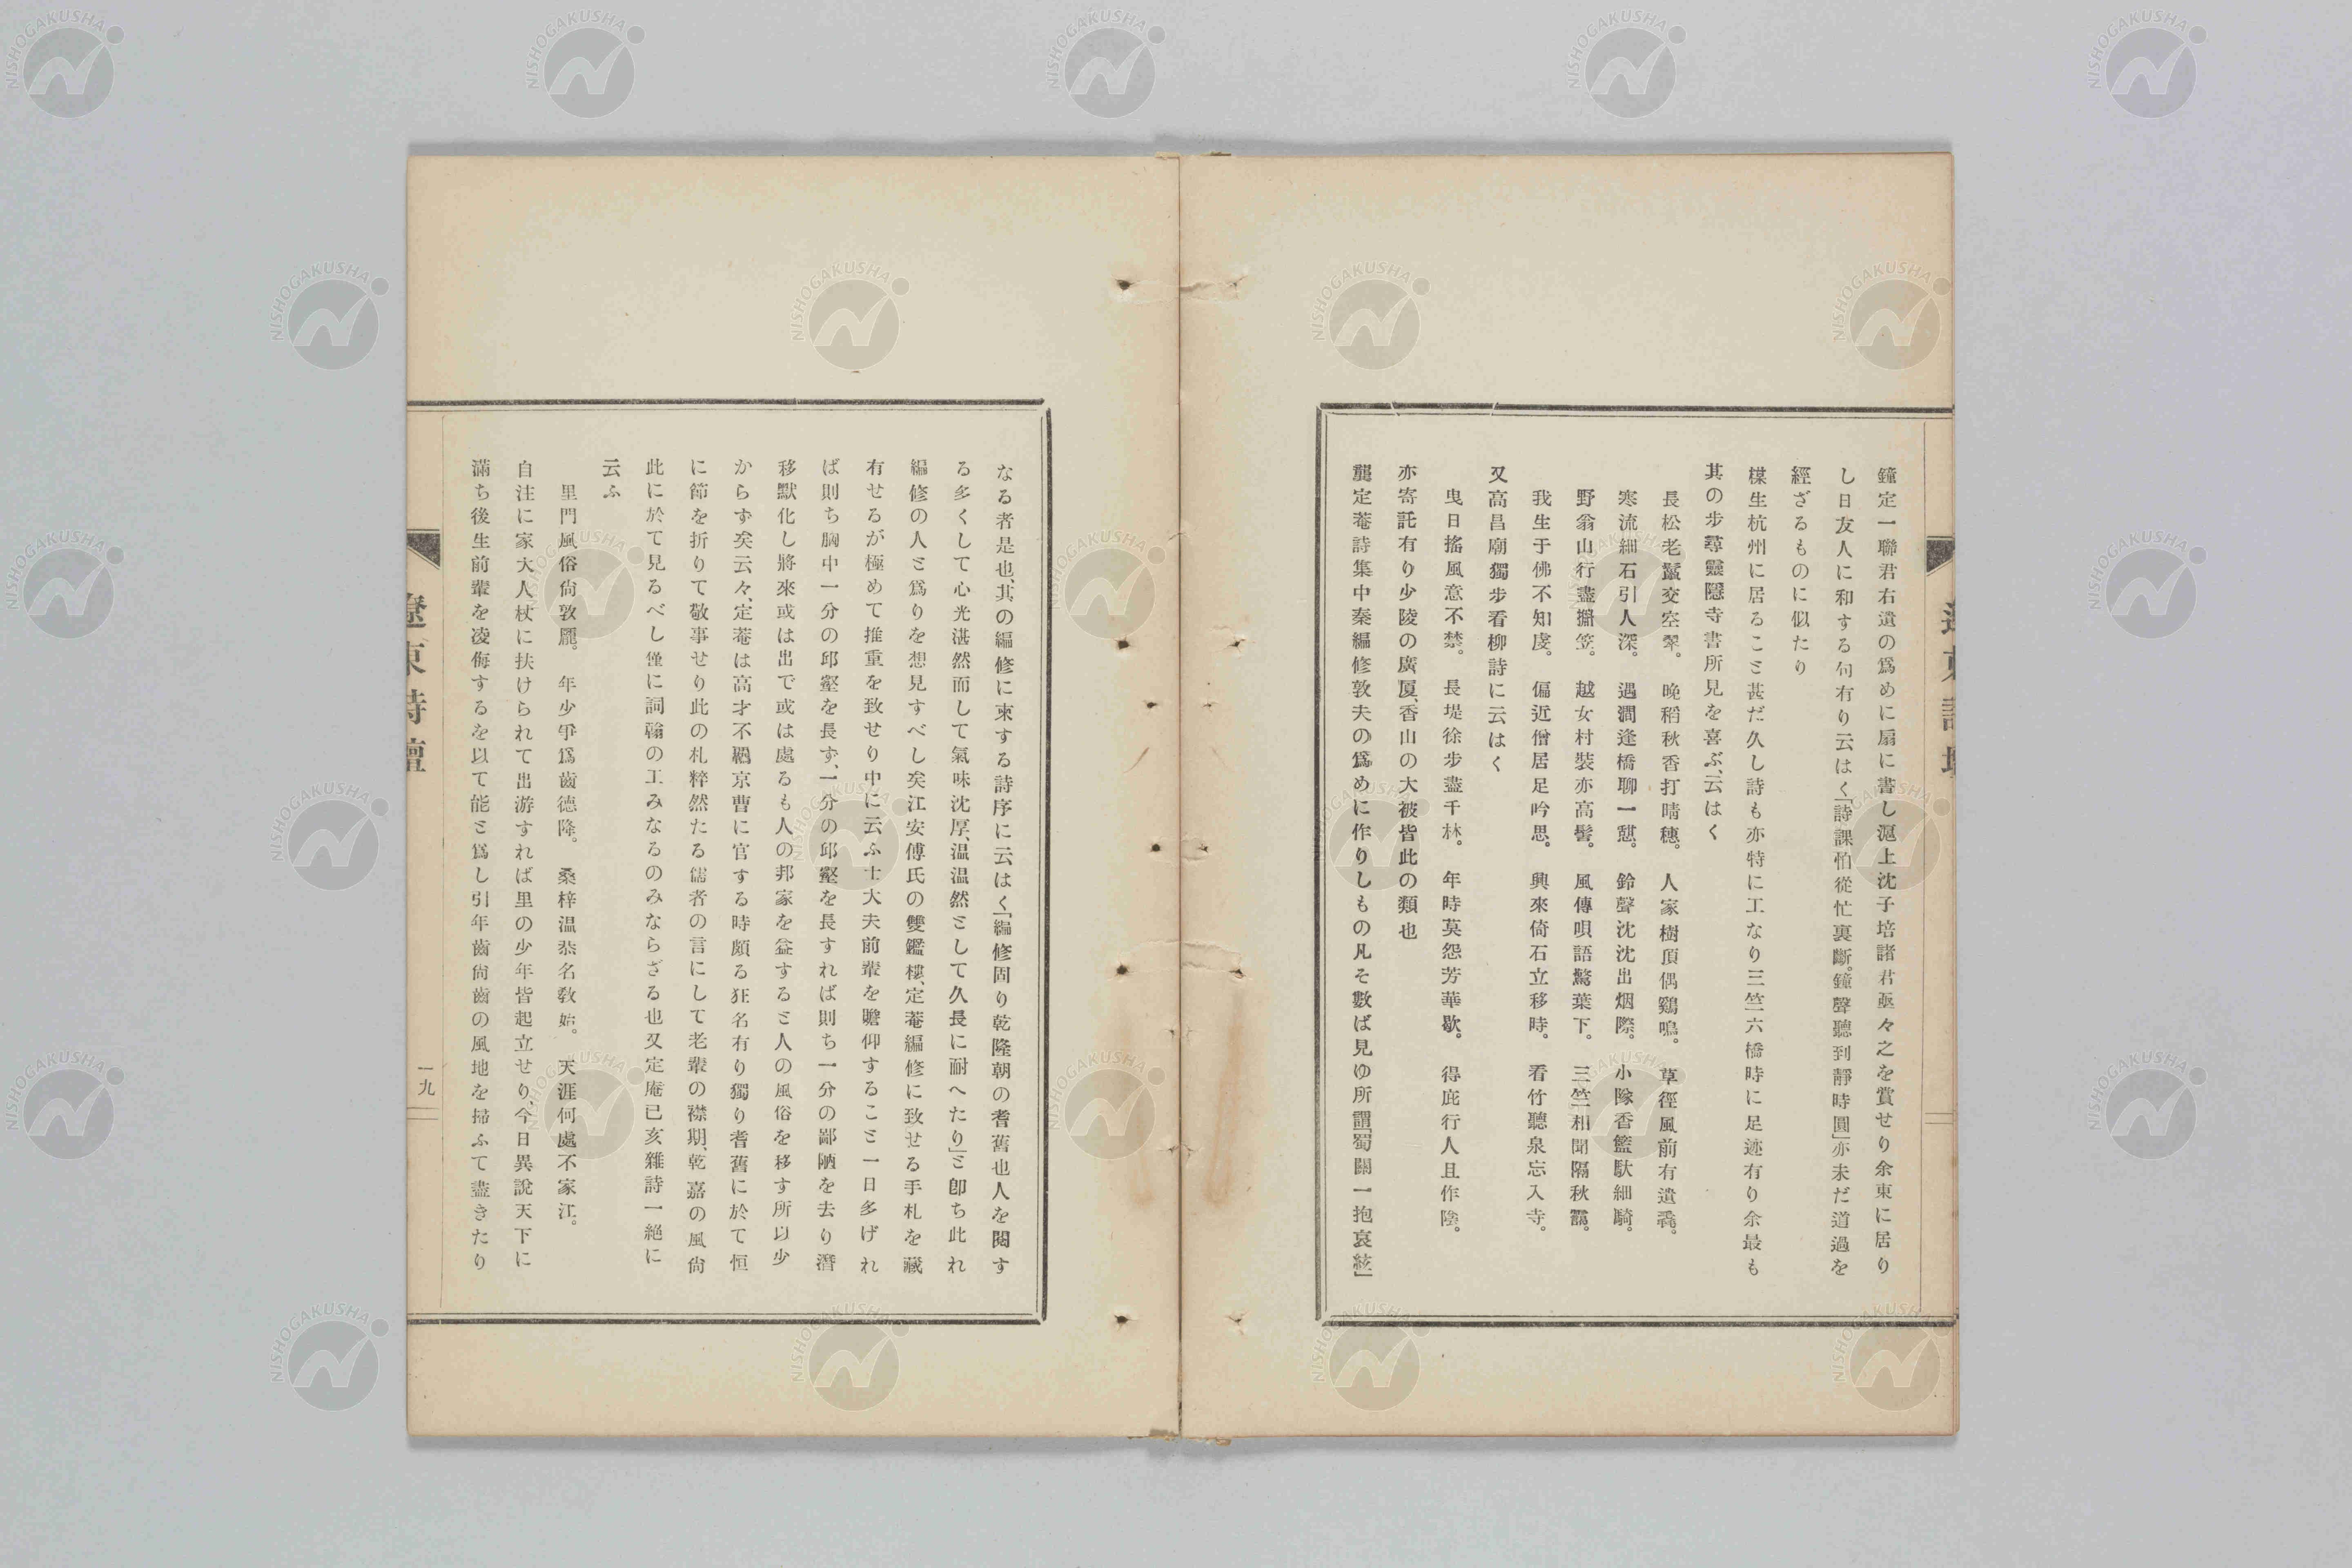 鐘定一聯君右遺の爲めに扇に書し滬上沈子培諸君亟々之を賞せり余東に居り
し日友人に和する句有り云はく「詩課怕從忙裏斷。鐘聲聽到靜時圓」亦未だ道過を
經ざるものに似たり
楳生杭州に居るこミ甚だ久し詩も亦特に工なり三竺六橋時に足迹有り余最も
其の步尋靈隱寺書所見を喜ぶ、云はく
長松老蠶交空翠。 晩稻秋香打晴穗。 人家樹頂偶鷄鳴。 草徑風前有遺
寒流細石引人深。 遇澗逢橋聊一憇。 鈴聲沈沈出烟際。 小隊香籃馱細騎。
野翁山行盡擱笠。 越女村裝亦高髻。 風傳唄語驚葉下。 三竺相聞隔秋靄。
我生于佛不知虔。 偏近僧居足吟思。 興來倚石立移時。 看竹聽泉忘入寺。
又高昌廟獨步看柳詩に云はく
曳日搖風意不禁。 長堤徐步盡千林。 年時莫怨芳華歇。 得庇行人且作陰。
亦寄託有り少陵の廣厦、香山の大被皆此の類也
龔定菴詩集中秦編修敦夫の爲めに作りしもの凡そ數ば見ゆ所謂「蜀關一抱哀絃」
遼東詩壇
なる者是也、其の編修に柬する詩序に云はく「編修固り乾隆朝の耆舊也人を閱す
る多くして心光湛然而して氣味沈厚、温温然ミして久長に耐へたり」ミ卽ち此れ
編修の人ミ爲りを想見すべし矣江安傅氏の雙鑑樓、定菴編修に致せる手札を藏
有せるが極めて推重を致せり中に云ふ士大夫前輩を瞻仰するこミ一日多げれ
ば則ち胸中一分の邱壑を長ず、一分の邱壑を長すれば則ち一分の鄙陋を去り潛
移默化し將來或は出で或は處るも人の邦家を益するミ人の風俗を移す所以少
からず矣云々、定菴は高才不羈京曹に官する時頗る狂名有り獨り耆舊に於て恒
に節を折りて敬事せり此の札粹然たる儒者の言にして老輩の襟期、乾嘉の風尙
此に於て見るべし僅に詞翰の工みなるのみならざる也又定庵己亥雜詩一絕に
云ふ
里門風俗尙敦龐。 年少爭爲齒德降。 桑梓溫恭名敎始。 天涯何處不家江。
自注に家大人杖に扶けられて出游すれば里の少年皆起立せり、今日異說天下に
滿ち後生前輩を凌侮するを以て能ミ爲し引年齒尙齒の風地を掃ふて盡きたり
遼東詩壇
一九